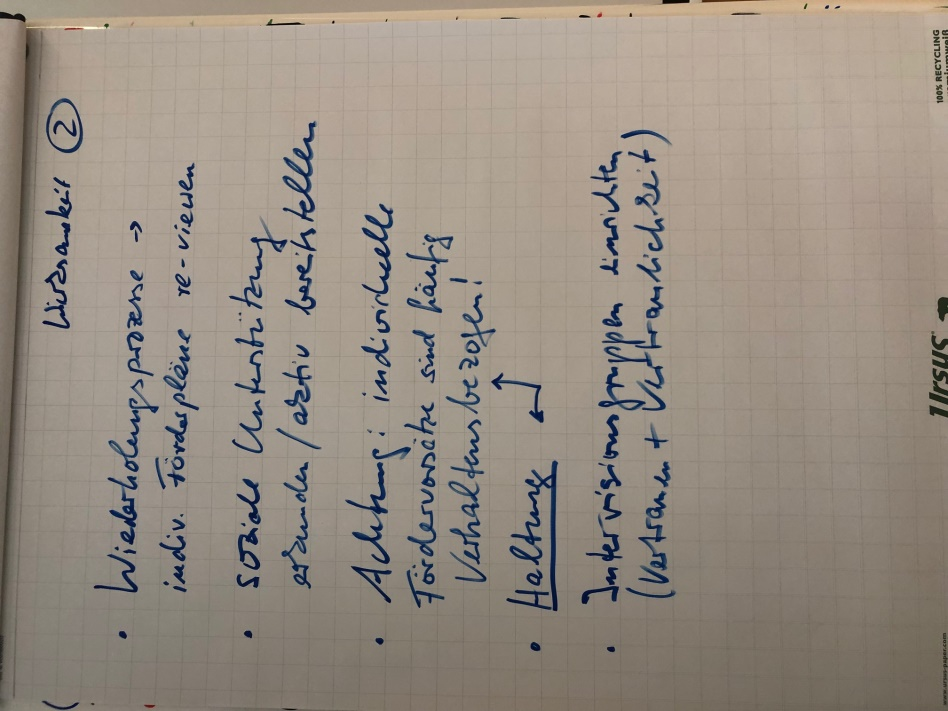 Wirksamkeit 2
• Wiederholungsprozesse →
indiv. Förderpläne re-viewen
• soziale Unterstützung
erkunden / aktiv bereitstellen
• Achtung: individuelle
Fördervorsätze sind häufig
Verhaltensbezogen!
• Haltung ↔
• Intervisionsgruppen einrichten
(Vertrauen + Vertraulichkeit)
100% RECYCLING
Ursus